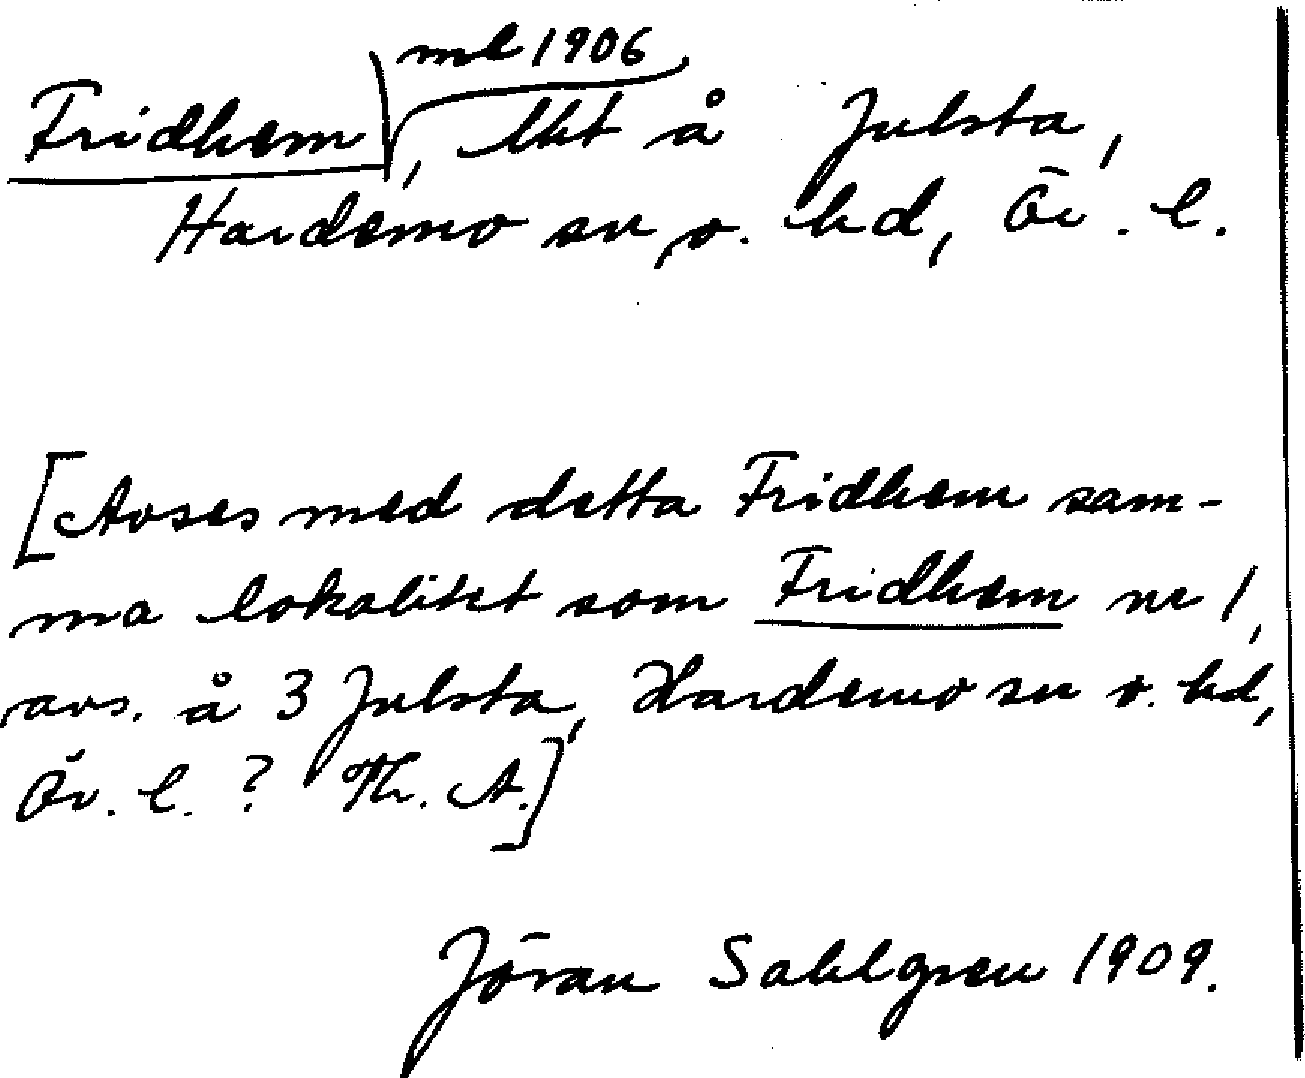 ml 1906
Fridhem, lht å Julsta,
Hardemo sn o. hd, Ör. l.
[Avses med detta Fridhem sam-
ma lokalitet som Fridhem nr 1,
avs. å 3 Julsta, Hardemo sn o. hd,
Ör. l. ? Th. A.]
Jöran Sahlgren 1909.